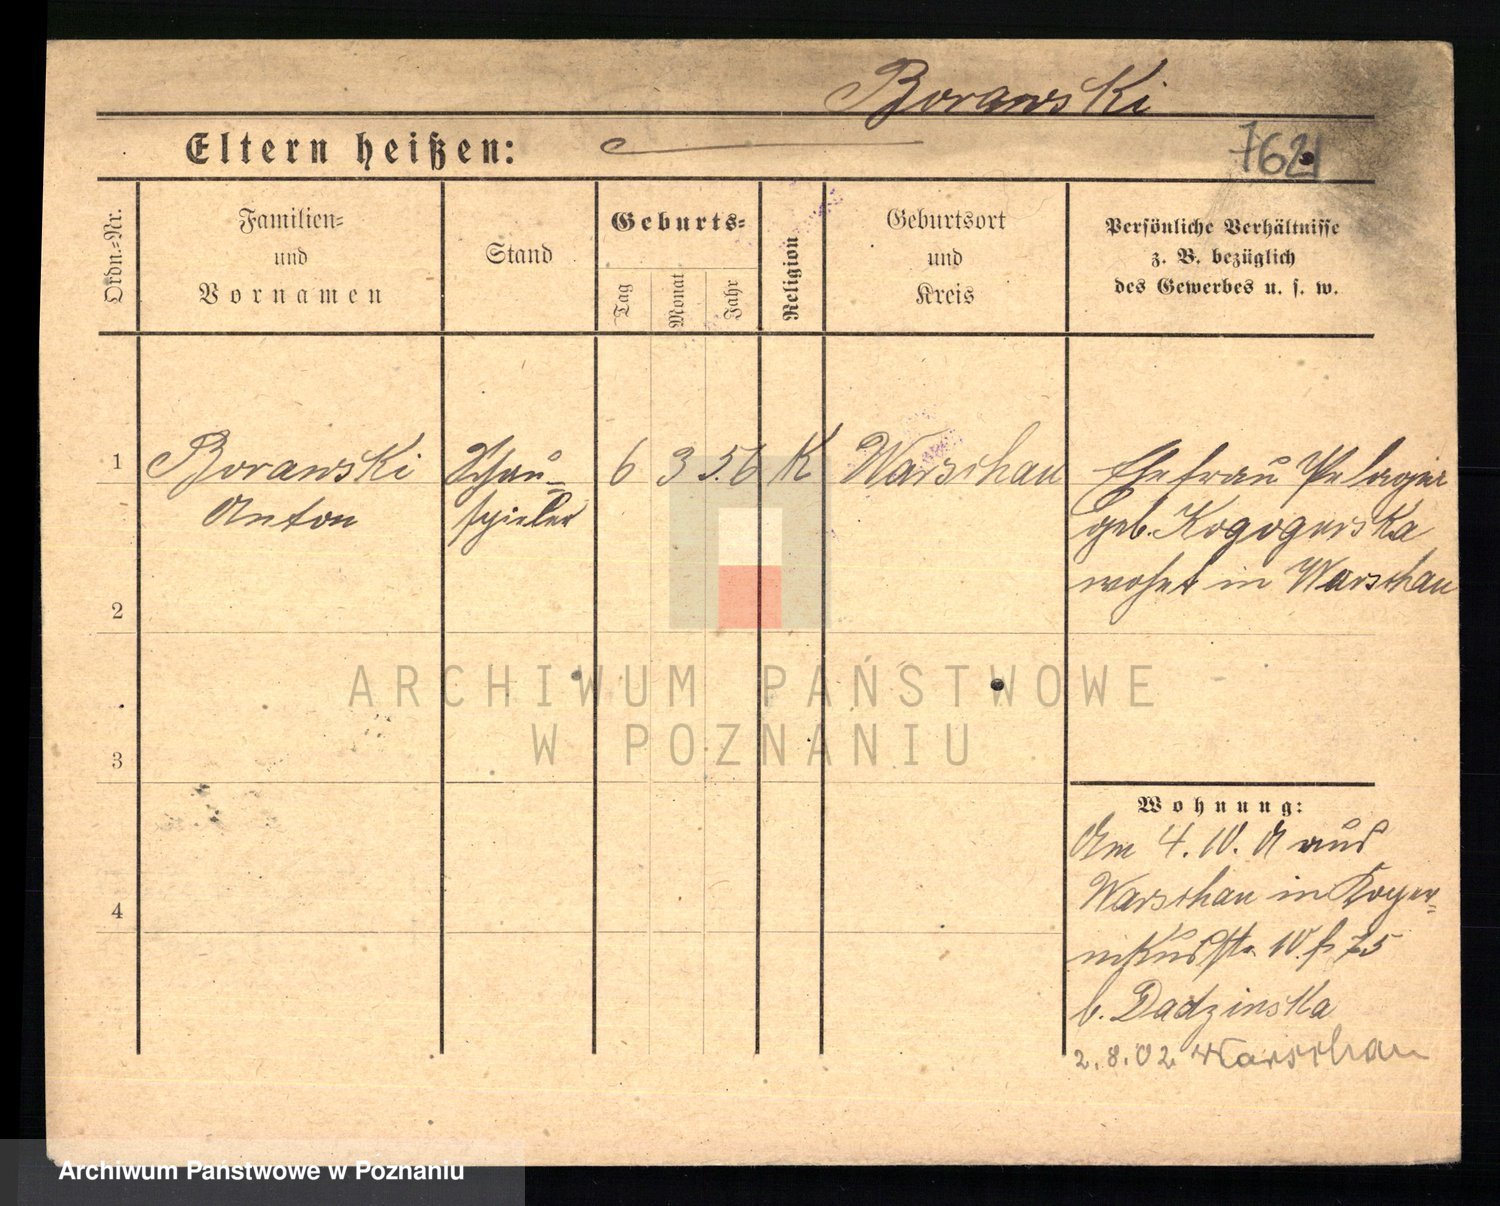 Borawski
Eltern heißen:
7621
Ordn.=Nr.
Familien=
und
Vornamen
Stand
Geburts=
Tag
Monat
Jahr
Religion
Geburtsort
und
Kreis
Persönliche Verhältnisse
z. B. bezüglich
des Gewerbes u. s. w.
1
Borawski
Anton
Schau=
spieler
6
3
56
K
Warschau
Ehefrau Pelagia
geb.
wohnt in Warschau
2
3
4
Wohnung:
Am 4. 10. aus
Warschau in
10
b. Dadzinska
2. 8. 02 Warschau
ARCHIWUM PAŃSTWOWE
W POZNANIU
Archiwum Państwowe w Poznaniu